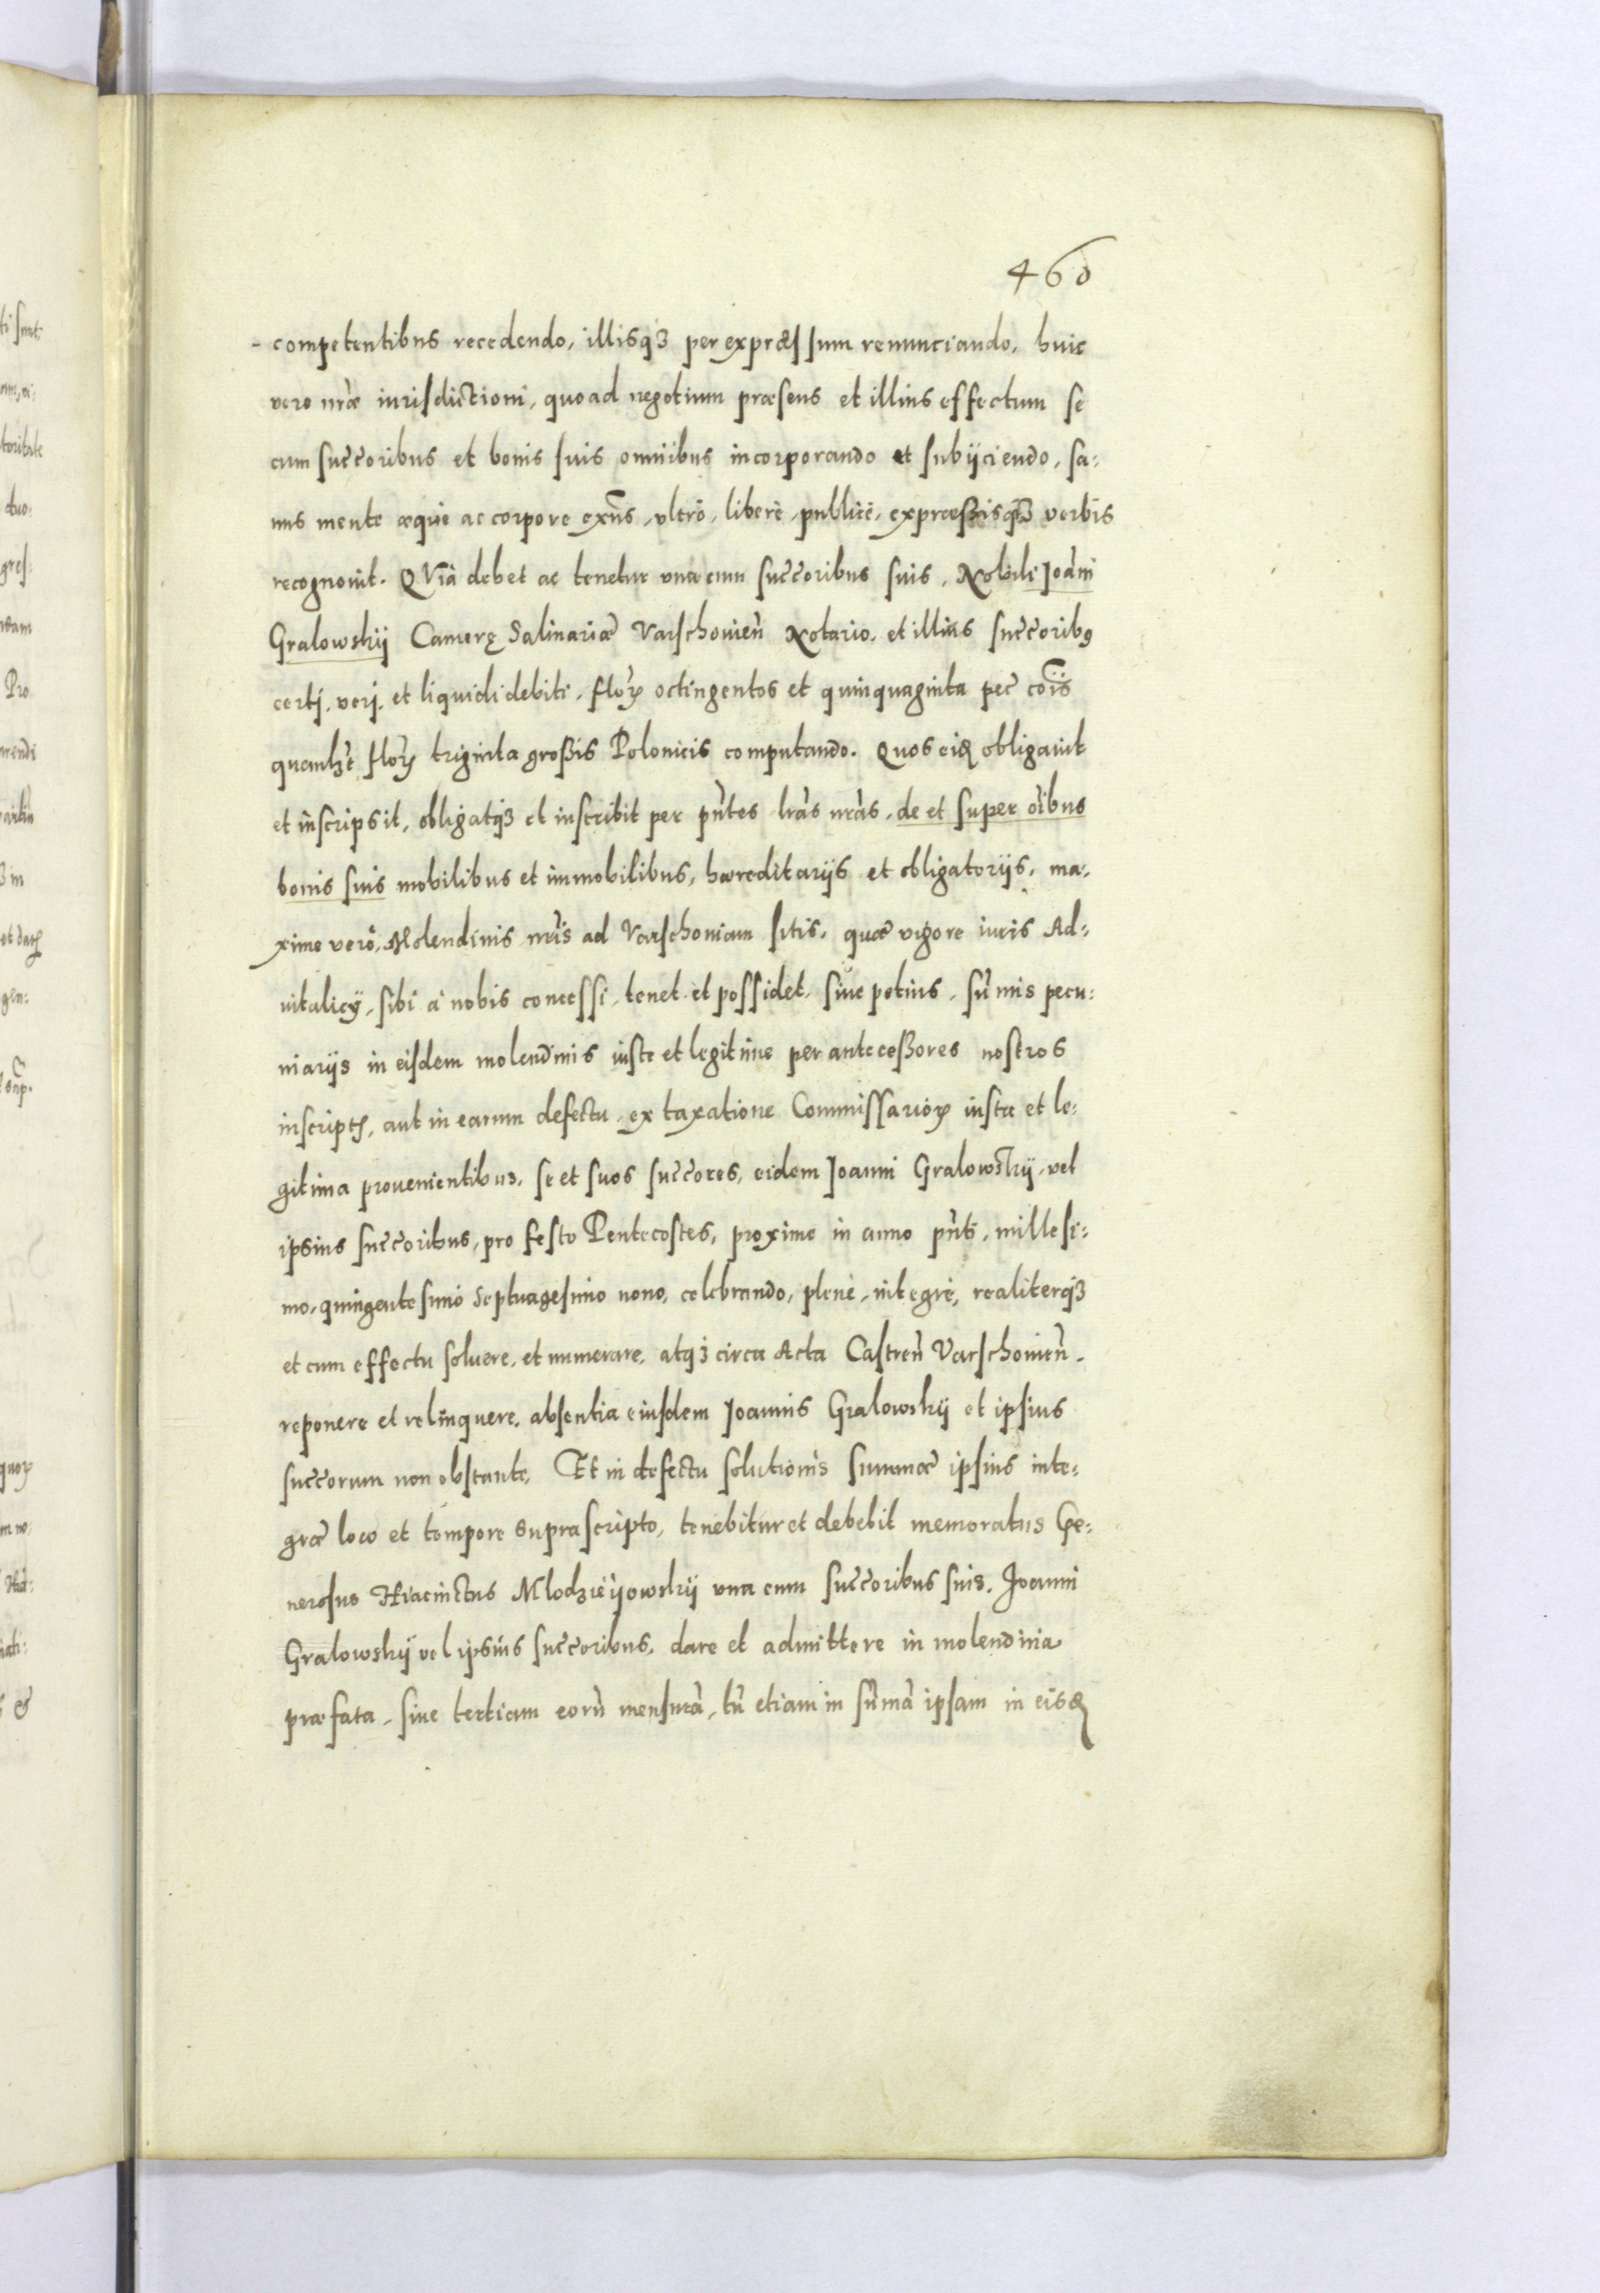 460
competentibus recedendo, illisq3 per expræssum renunciando, huic
vero nr̃æ iurisdictioni, quoad negotium præsens et illius effectum se
cum succ̃oribus et bonis suis omnibus incorporando et subijciendo, sa:
nus mente æque ac corpore exñs, vltrò, liberè, publicè, expræssisq3 verbis
recognovit. QVia debet ac tenetur vna cum succ̃oribus suis, Nobili Ioãni
Gralowskij Camerę Salinariæ Varschovieñ Notario, et illius succ̃oribꝯ
certj, verj, et liquidi debiti, floꝝ octingentos et quinquaginta pec̃ cõis
quemlꝫt floꝝ triginta grossis Polonicis computando. Quos eiđ obligavit
et inscripsit, obligatq3 et inscribit per pñtes lrãs nrãs, de et super oĩbus
bonis suis mobilibus et immobilibus, hæreditarijs et obligatorijs, ma:
xime verò, Molendinis nrĩs ad Varschoviam sitis, quæ vigore iuris Ad:
uitalicÿ, sibi à nobis concessi, tenet et possidet, siue potius, sum̃is pecu:
niarijs in eisdem molendinis iuste et legitime per antecessores nostros
inscriptꝭ, aut in earum defectu, ex taxatione Commissarioꝝ iusta et le:
gitima provenientibus, se et suos succ̃ores, eidem Ioanni Gralowskij, vel
ipsius succ̃oribus, pro festo Pentecostes, proxime in anno pñti, millesi:
mo, quingentesimo Septuagesimo nono, celebrando, plenè, integrè, realiterq3
et cum effectu soluere, et numerare, atq3 circa Acta Castreñ Varschovieñ.
reponere et relinquere, absentia eiusdem Joannis Gralowskij et ipsius
succ̃orum non obstante, Et in defectu solutionis summæ ipsius inte:
græ loco et tempore suprascripto, tenebitur et debebit memoratus Ge:
nerosus Hiacinctus Mlodzieÿowskij vna cum succ̃oribus suis, Joanni
Gralowskij vel ipsius succ̃oribus, dare et admittere in molendina
præfata, siue tertiam eorũ mensurã, tũ etiam in sum̃ã ipsam in eisđ